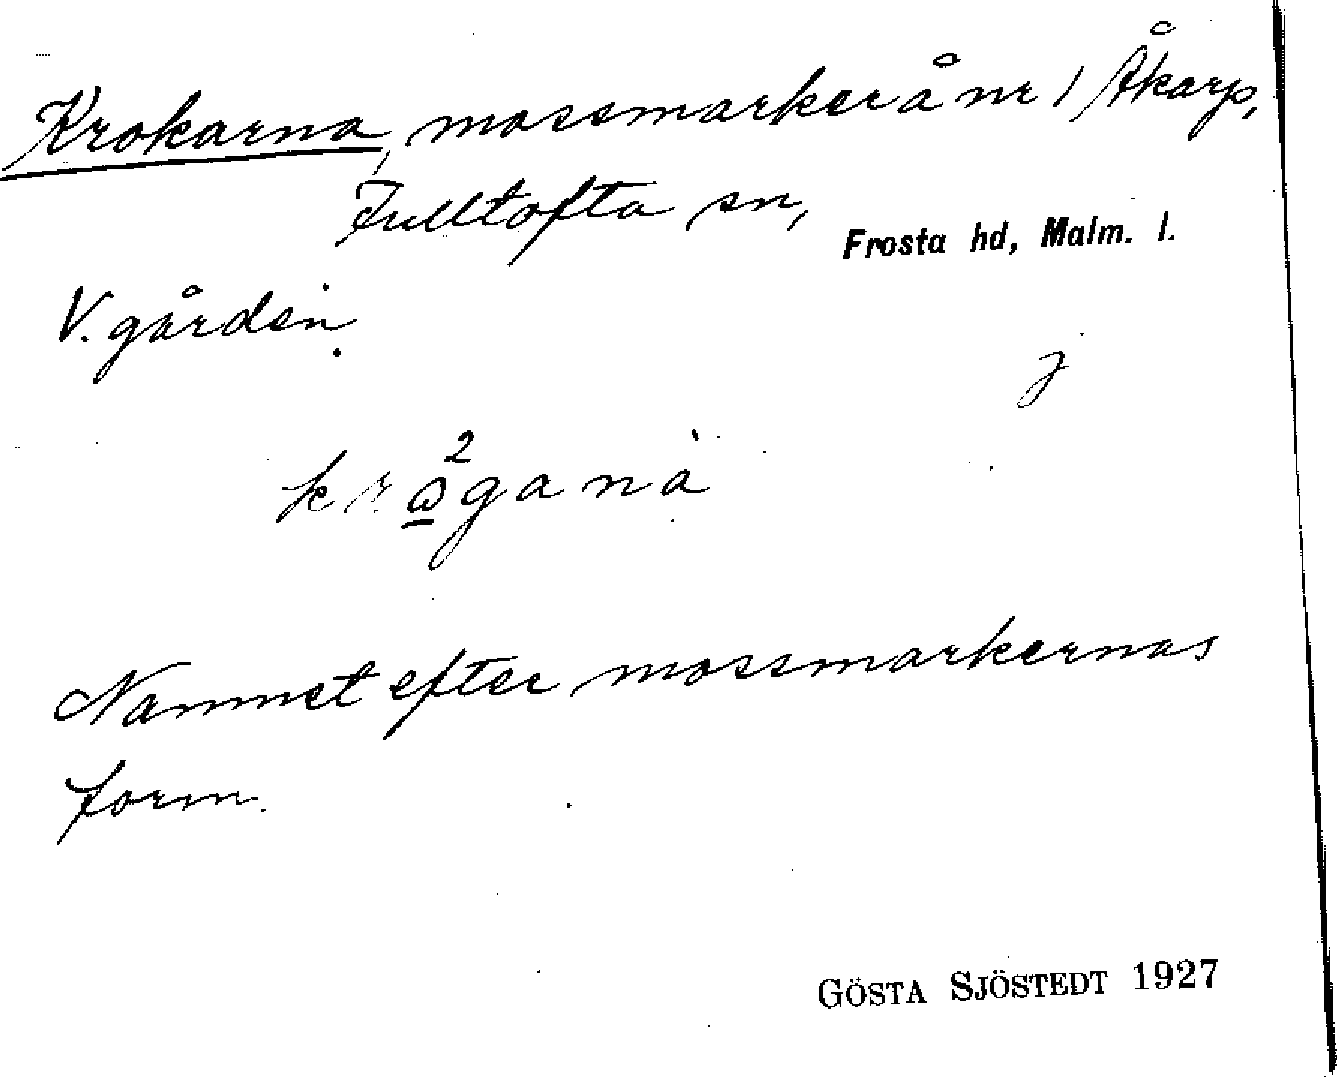 Krokarna, mossmarker å nr 1 Åkarp,
Fulltofta sn, Frosta hd, Malm. l.
V. gården.
j
krω̱²ganà
Namnet efter mossmarkernas
form.
GÖSTA SJÖSTEDT 1927